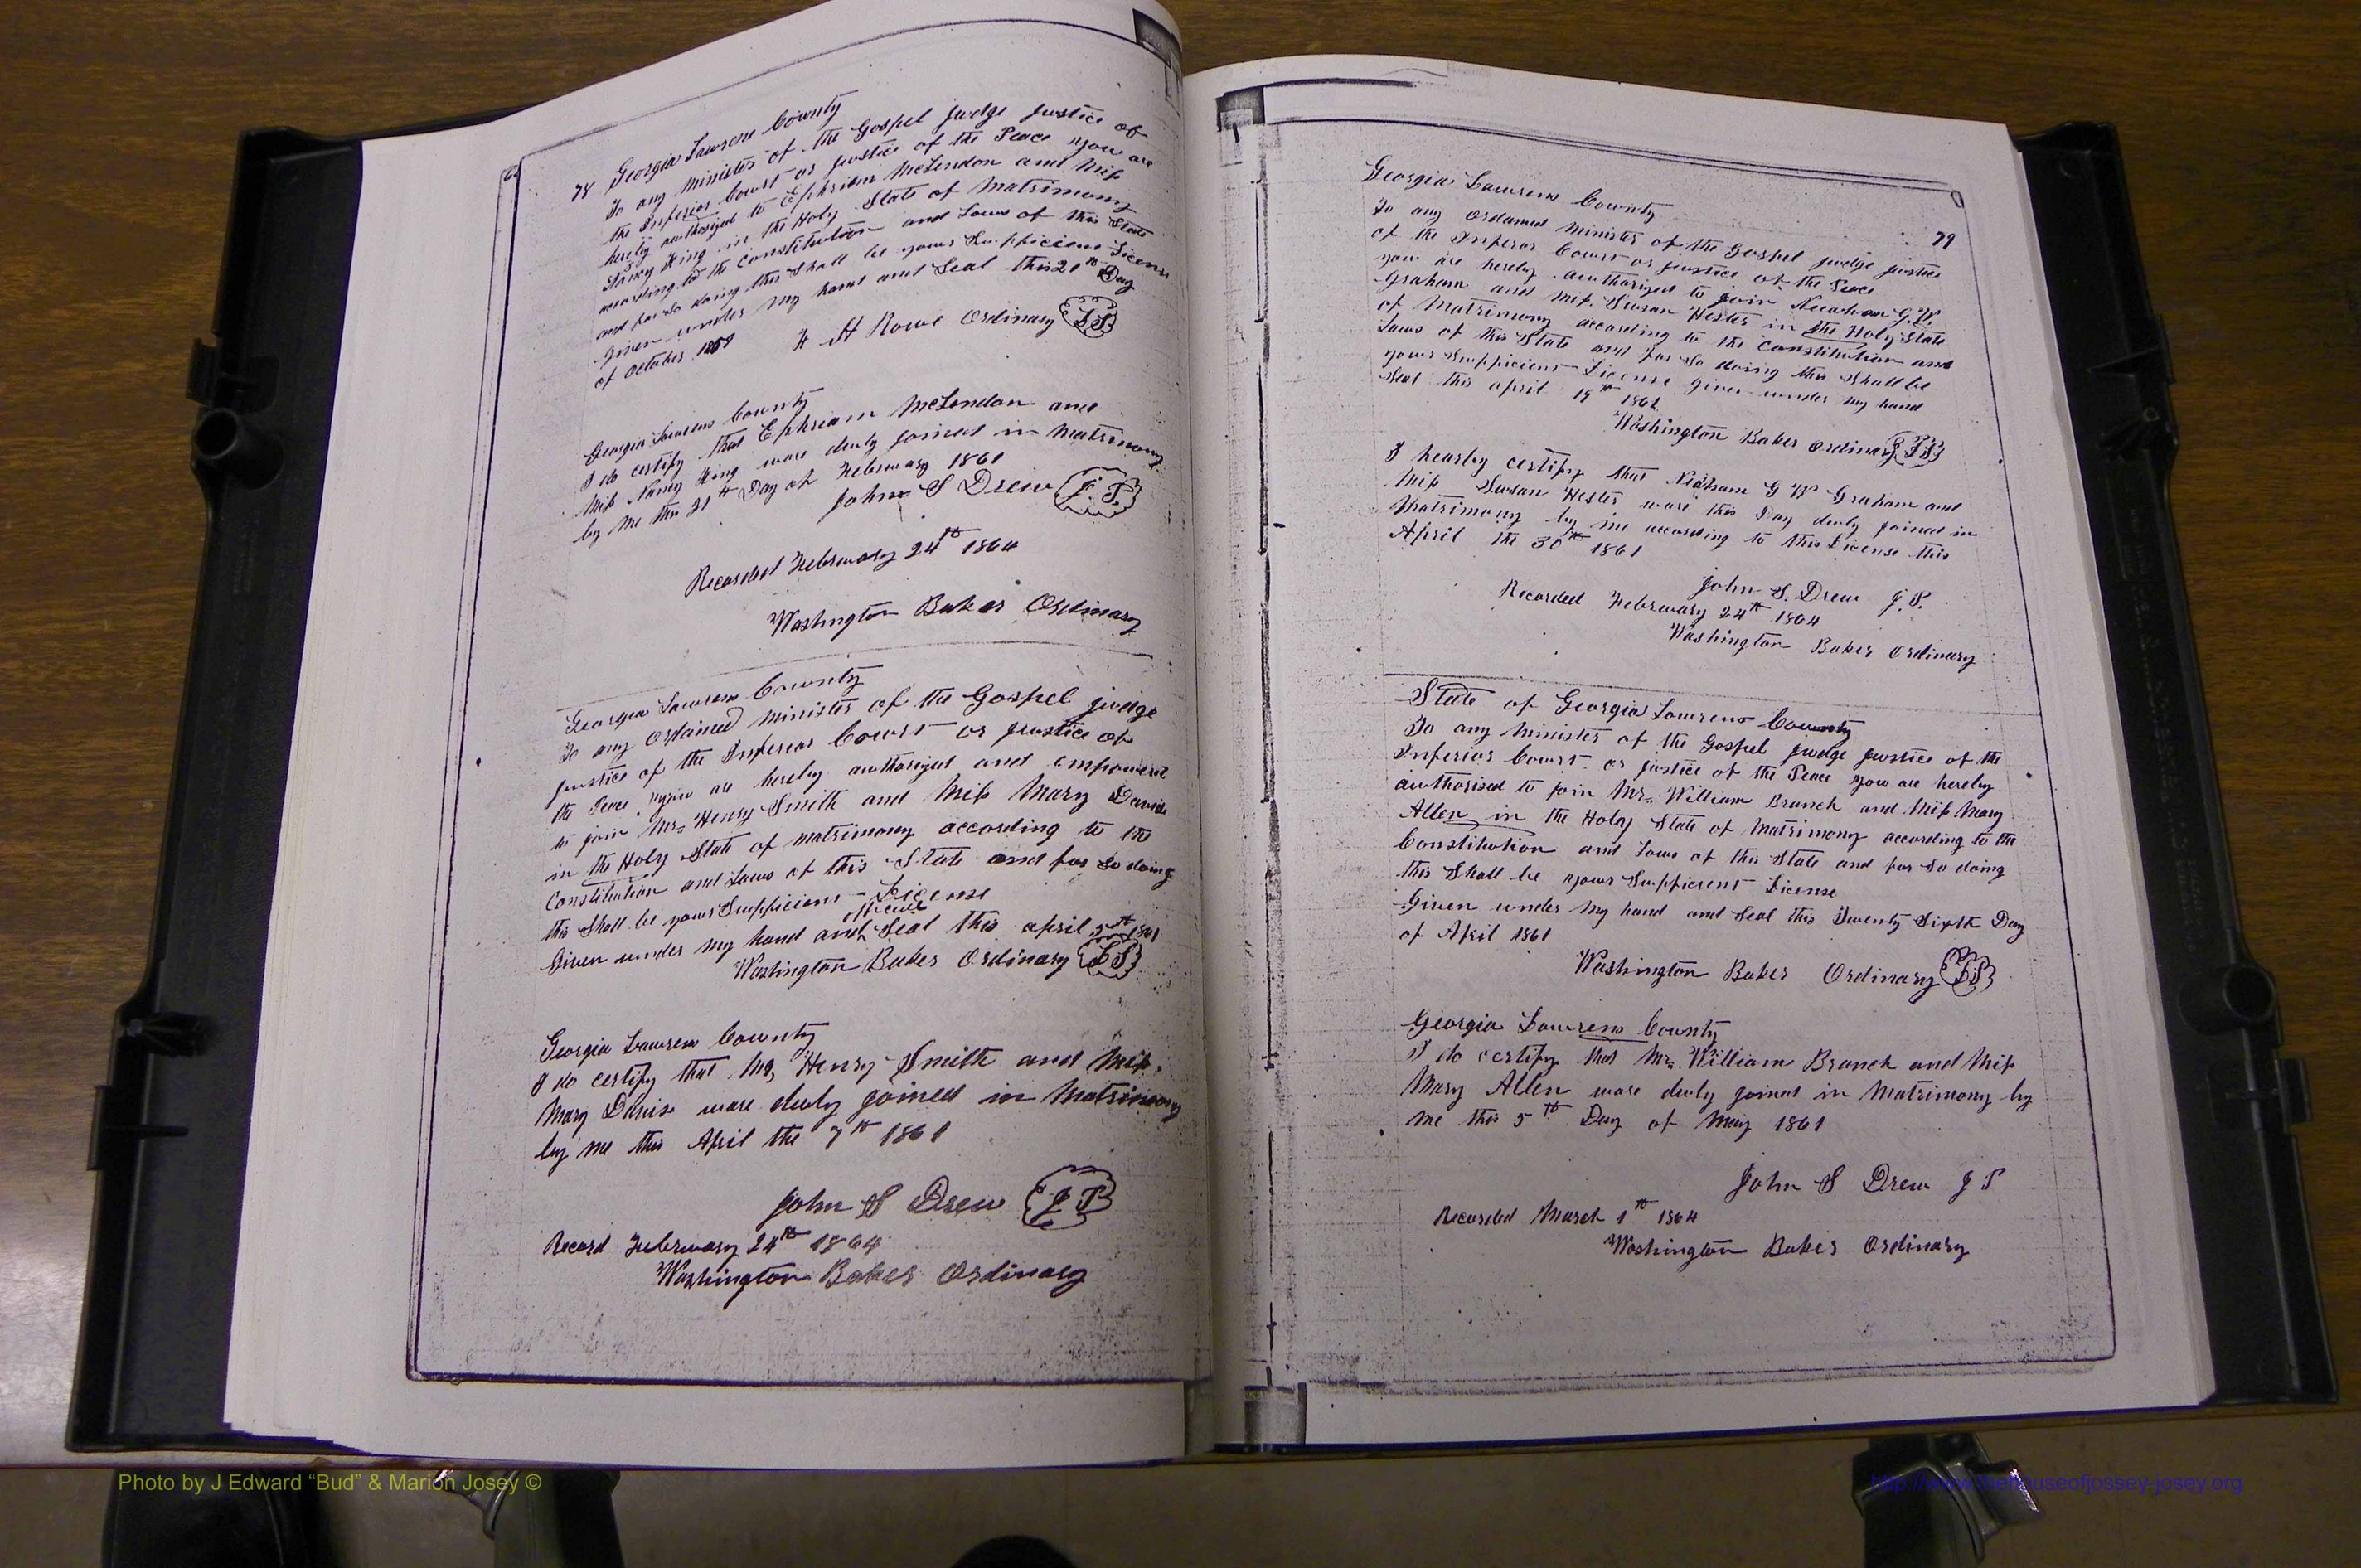 78 Georgia Lawrens County
To any Minister of the Gospel judge justice of
the Inferior Court or justice of the Peace you are
hereby authorized to Ephriam McLendon and Miss
Nancy King in the Holy State of Matrimony
according to the Constitution and Laws of this State
and for so doing this Shall be your Sufficient License
Given under my hand and Seal this 20th Day
of October 1859
Rowe Ordinary L S
Georgia Lawrens County
I do certify that Ephream McLendon and
Miss Nancy King ware duly joined in Matrimony
by me this 21st Day of February 1861
John S Drew J. P.
Recorded February 24th 1864
Washington Baker Ordinary
Georgia Lawrens County
To any Ordained Minister of the Gospel judge
justice of the Inferior Court or justice of
the Peace you are hereby authorized and empowered
to join Mr. Henry Smith and Miss Mary Davis
in the Holy State of matrimony according to the
Constitution and Laws of this State and for So doing
this Shall be your Sufficient License
Given under my hand and Seal this april 1861
Washington Baker Ordinary L S
Georgia Lawrens County
I do certify that Mr Henry Smith and Miss
Mary Davis ware duly joined in Matrimony
by me this April the 7th 1861
John S Drew J P
Record February 24th 1864
Washington Baker Ordinary
79
Georgia Lawrens County
To any Ordained Minister of the Gospel judge justice
of the Inferor Court or justice of the Peace
you are hereby authorized to join G. W.
Graham and Miss Susan Hester in the Holy State
of Matrimony according to the Constitution and
Laws of this State and for So doing this Shall be
your Sufficient License Given under my hand
Seal this april 19th 1861
Washington Baker Ordinary L S
I hearby certify that Nidham G W Graham and
Miss Susan Hester ware this Day duly joined in
Matrimony by me according to this License this
April the 30th 1861
John S. Drew J. P.
Recorded February 24th 1864
Washington Baker Ordinary
State of Georgia Lawrens County
To any Minister of the Gospel judge justice of the
Inferior Court or justice of the Peace you are hereby
authorised to join Mr. William Branch and Miss Mary
Allen in the Holy State of Matrimony according to the
Constitution and Laws of this State and for So doing
this Shall be your Sufficient License
Given under my hand and Seal this Twenty Sixth Day
of April 1861
Washington Baker Ordinary L S
Georgia Lawrens County
I do certify that Mr. William Branch and Miss
Mary Allen ware duly joined in Matrimony by
me this 5th Day of May 1861
John S Drew J P
Recorded March 1th 1864
Washington Baker Ordinary
Photo by J Edward “Bud” & Marion Josey ©
http://www.thehouseofjossey-josey.org